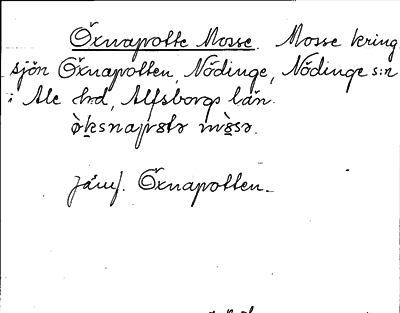 Öxnapotte Mosse. Mosse kring
sjön Öxnapotten, Nödinge, Nödinge s:n
i Ale hrd, Älfsborgs län.
Jämf. Öxnapotten.